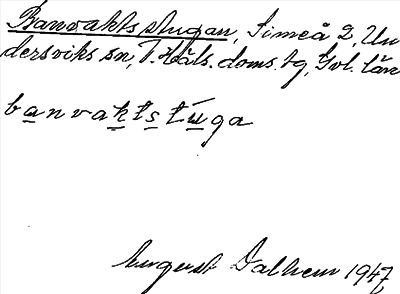 Banvaktsstugan, Simeå 2, Un
dersviks sn, V. Häls. doms. tg, Gvl. län
banvaktstúga
August Dalheim 1947